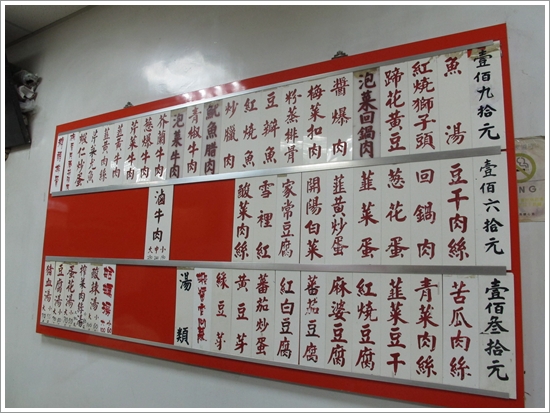 壹佰九拾元
魚湯
紅燒獅子頭
蹄花黃豆
泡菜回鍋肉
醬爆肉
梅菜扣肉
粉蒸排骨
豆瓣魚
紅燒魚
炒臘肉
魷魚腊肉
青椒牛肉
泡菜牛肉
芥蘭牛肉
蔥爆牛肉
芹菜牛肉
韮黃牛肉
韮黃肉絲
蝦仁炒蛋
壹佰六拾元
豆干肉絲
回鍋肉
蔥花蛋
韮菜蛋
韮黃炒蛋
開陽白菜
家常豆腐
雪裡紅
酸菜肉絲
滷牛肉
大 中 小
壹佰叁拾元
苦瓜肉絲
青菜肉絲
韮菜豆干
紅燒豆腐
麻婆豆腐
蕃茄豆腐
紅白豆腐
蕃茄炒蛋
黃豆芽
綠豆芽
湯類
酸辣湯
榨菜肉絲湯
蛋花湯
豆腐湯
豬血湯